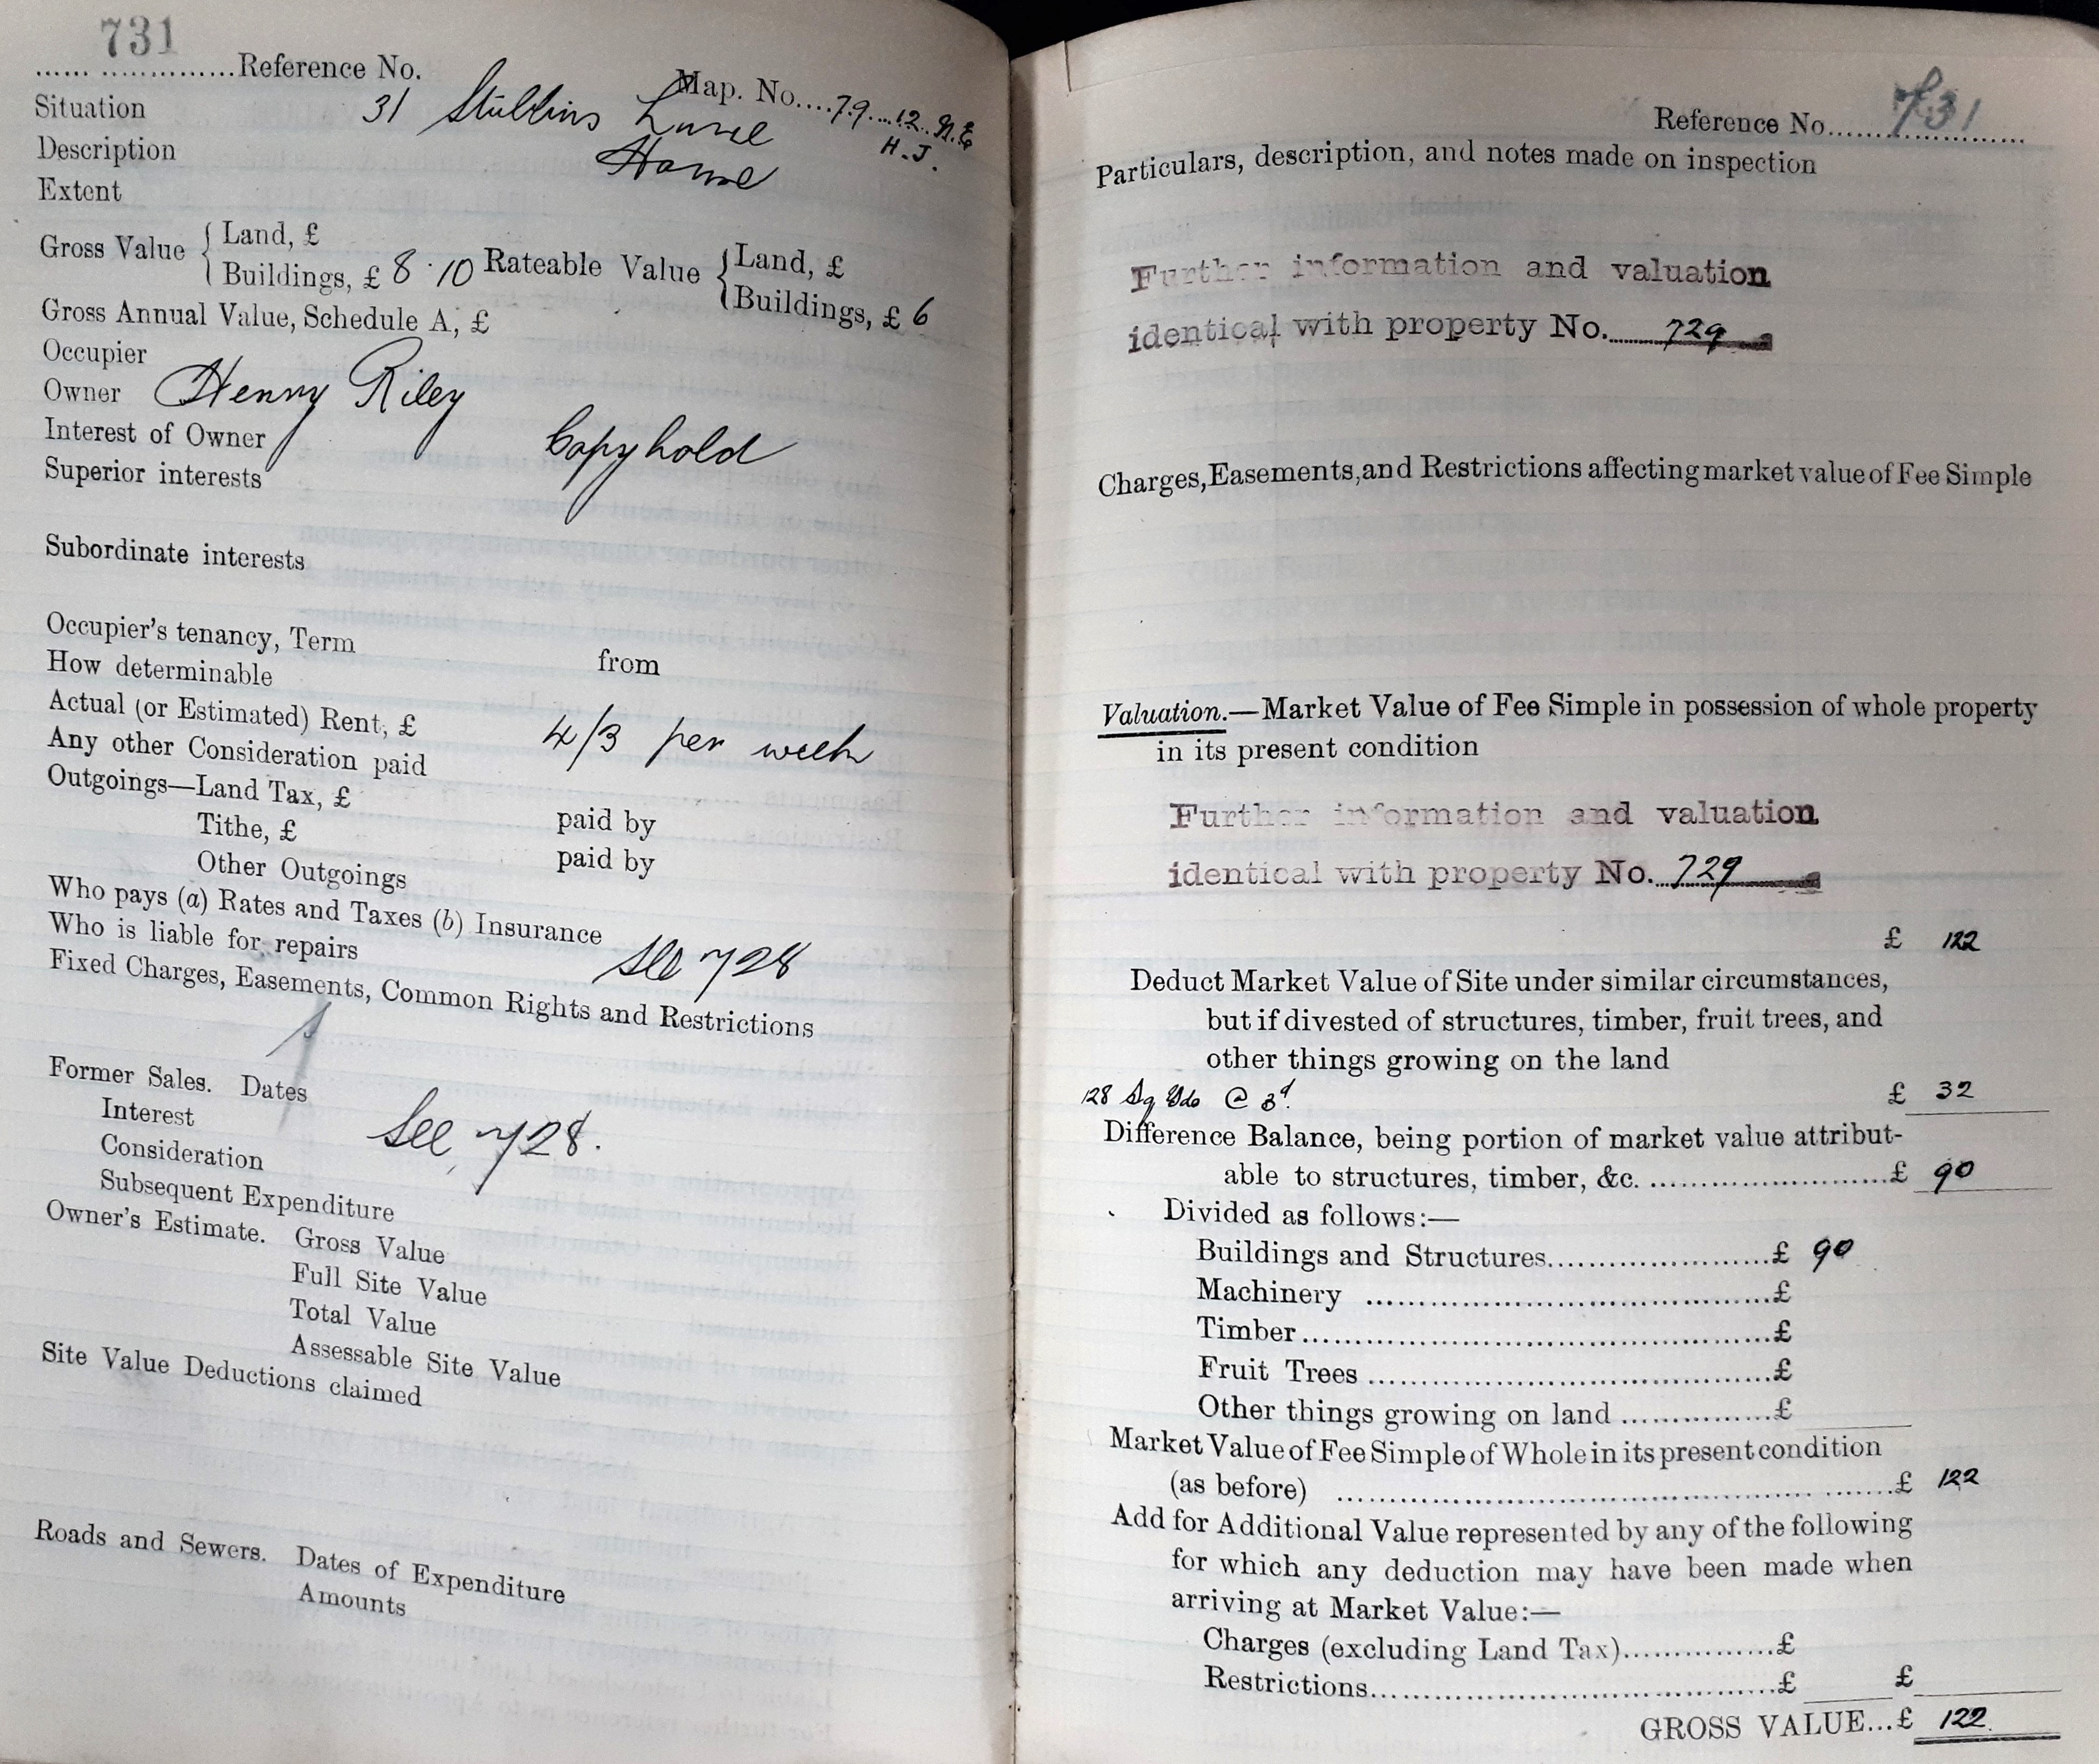 731
...... ...............Reference No.
Map. No....79...12. N.E
H.J.
Situation 31 Stubbins Lane
Description House
Extent
Gross Value { Land, £
Buildings, £ 8.10 Rateable Value { Land, £
Buildings, £ 6
Gross Annual Value, Schedule A, £
Occupier
Owner Henry Riley
Interest of Owner Copyhold
Superior interests
Subordinate interests
Occupier's tenancy, Term from
How determinable
Actual (or Estimated) Rent, £ 4/3 per week
Any other Consideration paid
Outgoings—Land Tax, £ paid by
Tithe, £ paid by
Other Outgoings
Who pays (a) Rates and Taxes (b) Insurance
Who is liable for repairs See 728
Fixed Charges, Easements, Common Rights and Restrictions
Former Sales. Dates
Interest See 728.
Consideration
Subsequent Expenditure
Owner's Estimate. Gross Value
Full Site Value
Total Value
Assessable Site Value
Site Value Deductions claimed
Roads and Sewers. Dates of Expenditure
Amounts
Reference No. 731
Particulars, description, and notes made on inspection
Further information and valuation
identical with property No. 729
Charges, Easements, and Restrictions affecting market value of Fee Simple
Valuation.—Market Value of Fee Simple in possession of whole property
in its present condition
Further information and valuation
identical with property No. 729
£ 122
Deduct Market Value of Site under similar circumstances,
but if divested of structures, timber, fruit trees, and
other things growing on the land
128 Sq Yds @ 3d. £ 32
Difference Balance, being portion of market value attribut-
able to structures, timber, &c. ........................£ 90
Divided as follows:—
Buildings and Structures......................£ 90
Machinery .......................................£
Timber.............................................£
Fruit Trees .......................................£
Other things growing on land ...............£
Market Value of Fee Simple of Whole in its present condition
(as before) .....................................................£ 122
Add for Additional Value represented by any of the following
for which any deduction may have been made when
arriving at Market Value:—
Charges (excluding Land Tax)...............£
Restrictions.......................................£ £
GROSS VALUE...£ 122